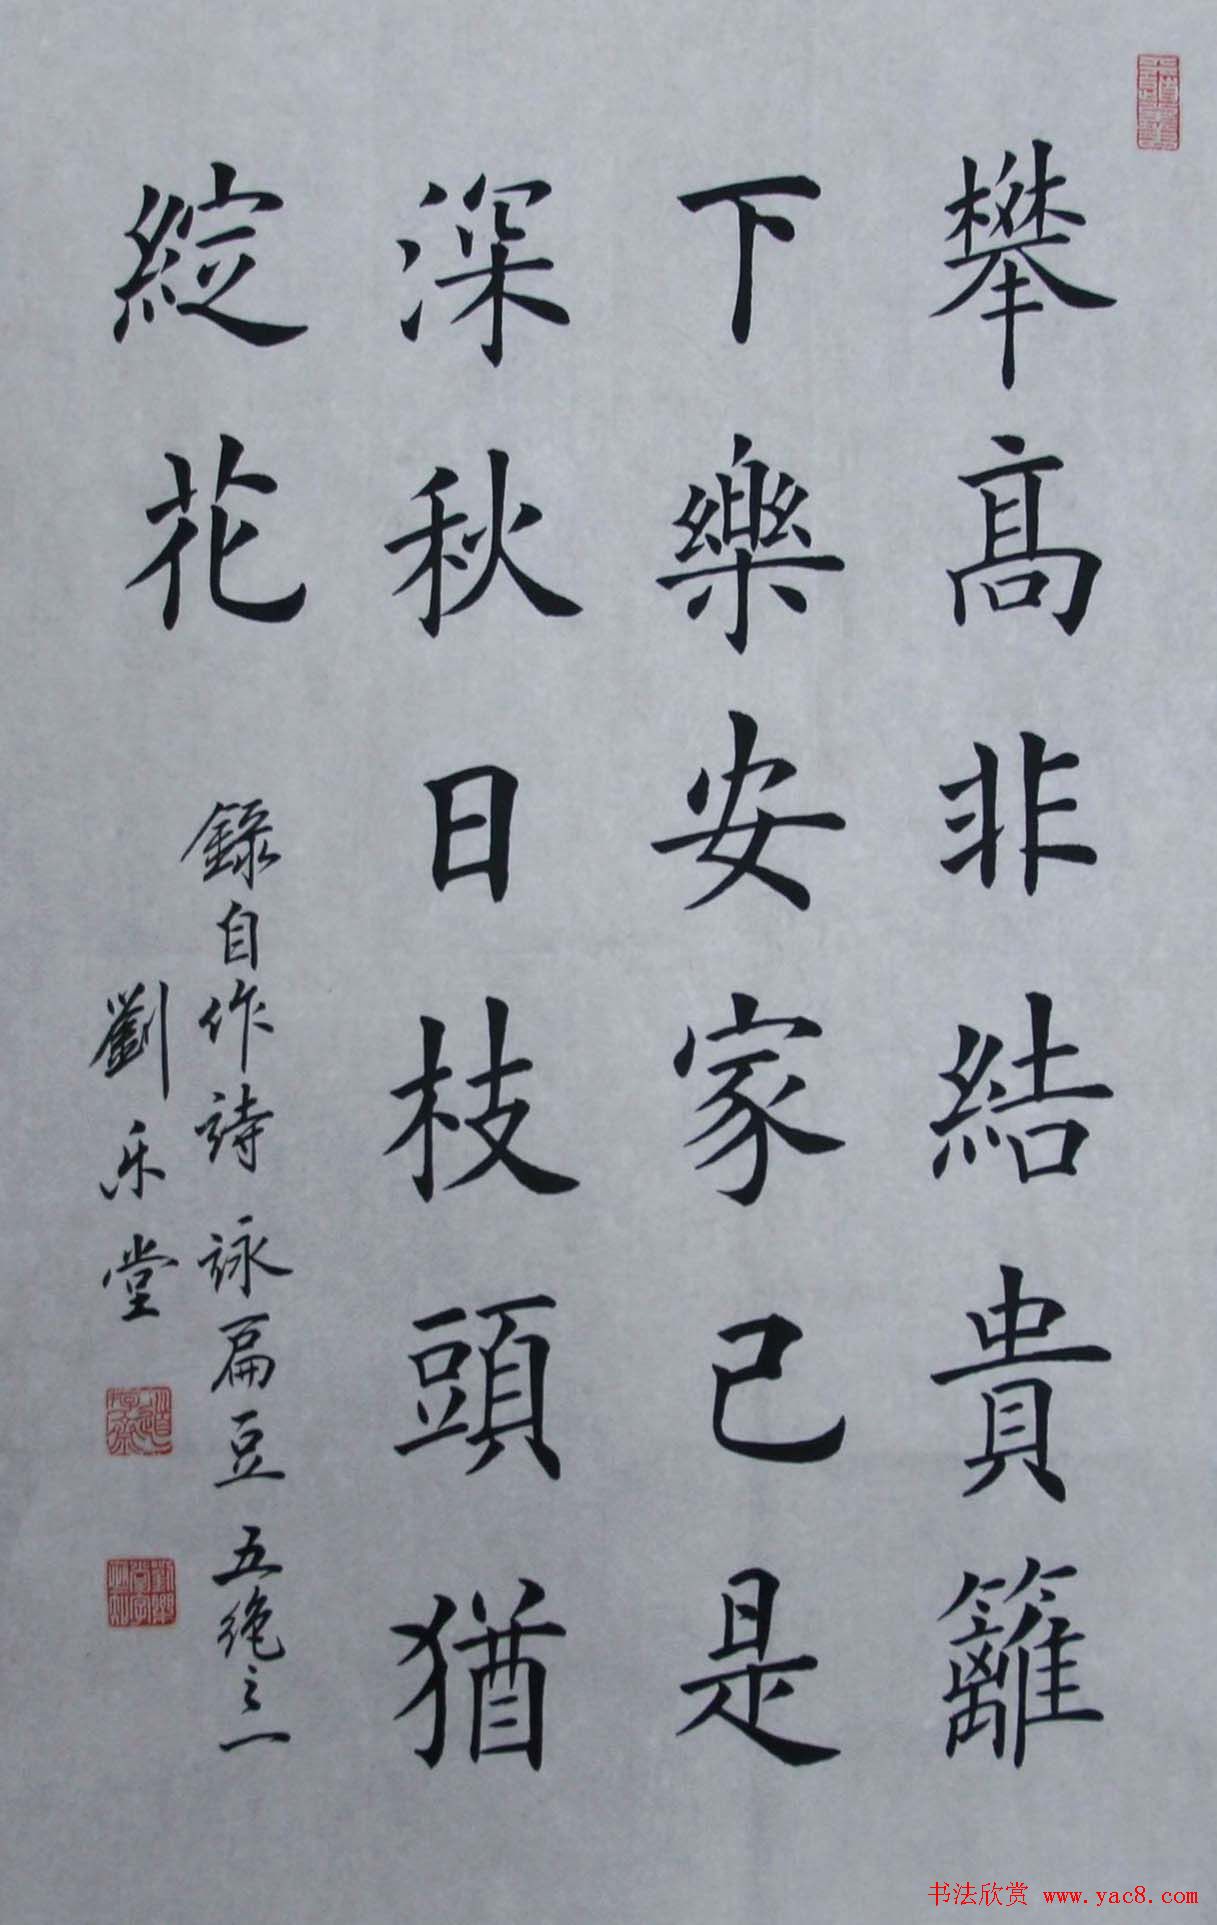 攀高非結貴籬
下樂安家已是
深秋日枝頭猶
綻花
錄自作詩詠扁豆五绝之一
劉乐堂
书法欣赏 www.yac8.com